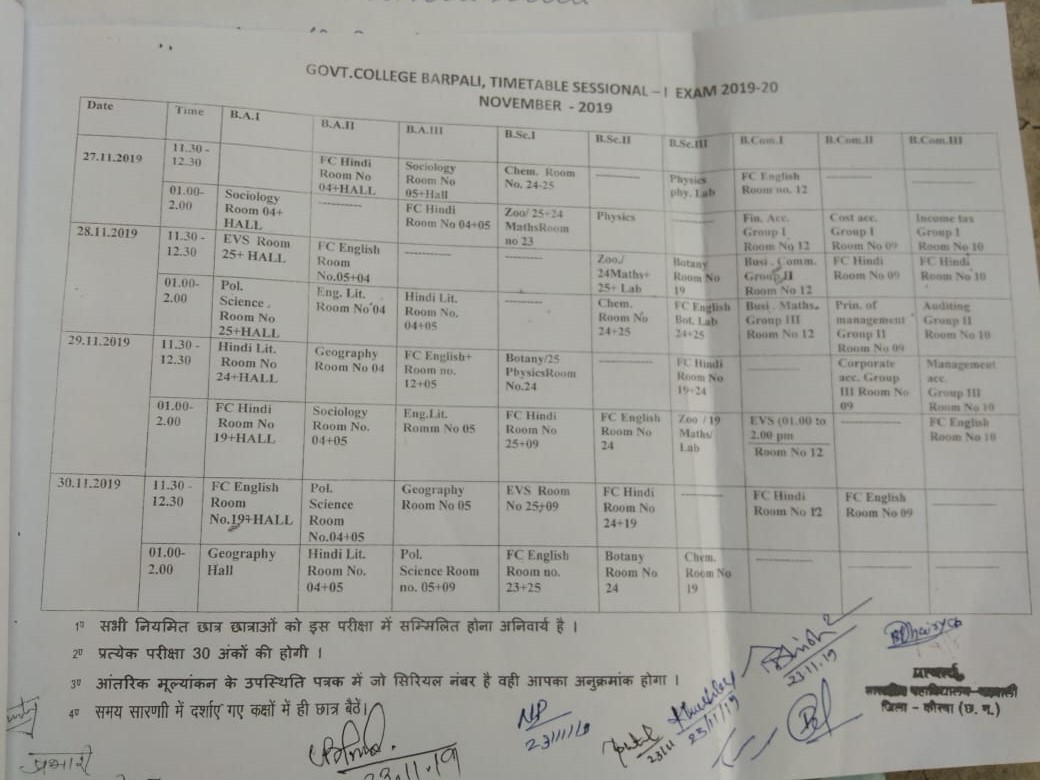 GOVT.COLLEGE BARPALI, TIMETABLE SESSIONAL – I EXAM 2019-20
NOVEMBER - 2019
Date Time B.A.I B.A.II B.A.III B.Sc.I B.Sc.II B.Sc.III B.Com.I B.Com.II B.Com.III
27.11.2019
11.30 -
12.30
FC Hindi
Room No
04+HALL
Sociology
Room No
05+Hall
Chem. Room
No. 24-25
--------
Physics
phy. Lab
FC English
Room no. 12
--------
--------
01.00-
2.00
Sociology
Room 04+
HALL
--------
FC Hindi
Room No 04+05
Zoo/ 25+24
MathsRoom
no 23
Physics
--------
Fin. Acc.
Group I
Room No 12
Cost acc.
Group I
Room No 09
Income tax
Group I
Room No 10
28.11.2019
11.30 -
12.30
EVS Room
25+ HALL
FC English
Room
No.05+04
--------
--------
Zoo./
24Maths+
25+ Lab
Botany
Room No
19
Busi . Comm.
Group II
Room No 12
FC Hindi
Room No 09
FC Hindi
Room No 10
01.00-
2.00
Pol.
Science .
Room No
25+HALL
Eng. Lit.
Room No 04
Hindi Lit.
Room No.
04+05
--------
Chem.
Room No
24+25
FC English
Bot. Lab
24+25
Busi . Maths.
Group III
Room No 12
Prin. of
management
Group II
Room No 09
Auditing
Group II
Room No 10
29.11.2019
11.30 -
12.30
Hindi Lit.
Room No
24+HALL
Geography
Room No 04
FC English+
Room no.
12+05
Botany/25
PhysicsRoom
No.24
--------
FC Hindi
Room No
19+24
--------
Corporate
acc. Group
III Room No
09
Management
acc.
Group III
Room No 10
01.00-
2.00
FC Hindi
Room No
19+HALL
Sociology
Room No.
04+05
Eng.Lit.
Romm No 05
FC Hindi
Room No
25+09
FC English
Room No
24
Zoo /19
Maths/
Lab
EVS (01.00 to
2.00 pm
Room No 12
--------
FC English
Room No 10
30.11.2019
11.30 -
12.30
FC English
Room
No.19+HALL
Pol.
Science
Room
No.04+05
Geography
Room No 05
EVS Room
No 25+09
FC Hindi
Room No
24+19
--------
FC Hindi
Room No 12
FC English
Room No 09
--------
01.00-
2.00
Geography
Hall
Hindi Lit.
Room No.
04+05
Pol.
Science Room
no. 05+09
FC English
Room no.
23+25
Botany
Room No
24
Chem.
Room No
19
--------
--------
--------
1प सभी नियमित छात्र छात्राओं को इस परीक्षा में सम्मिलित होना अनिवार्य है ।
2प प्रत्येक परीक्षा 30 अंकों की होगी ।
3प आंतरिक मूल्यांकन के उपस्थिति पत्रक में जो सिरियल नंबर है वही आपका अनुक्रमांक होगा ।
4प समय सारणी में दर्शाए गए कक्षों में ही छात्र बैठें।
23.11.19
23/11/19
23/11
23/11/19
23.11.19
प्राचार्य
जिला - कोरबा (छ. ग.)
प्रभारी